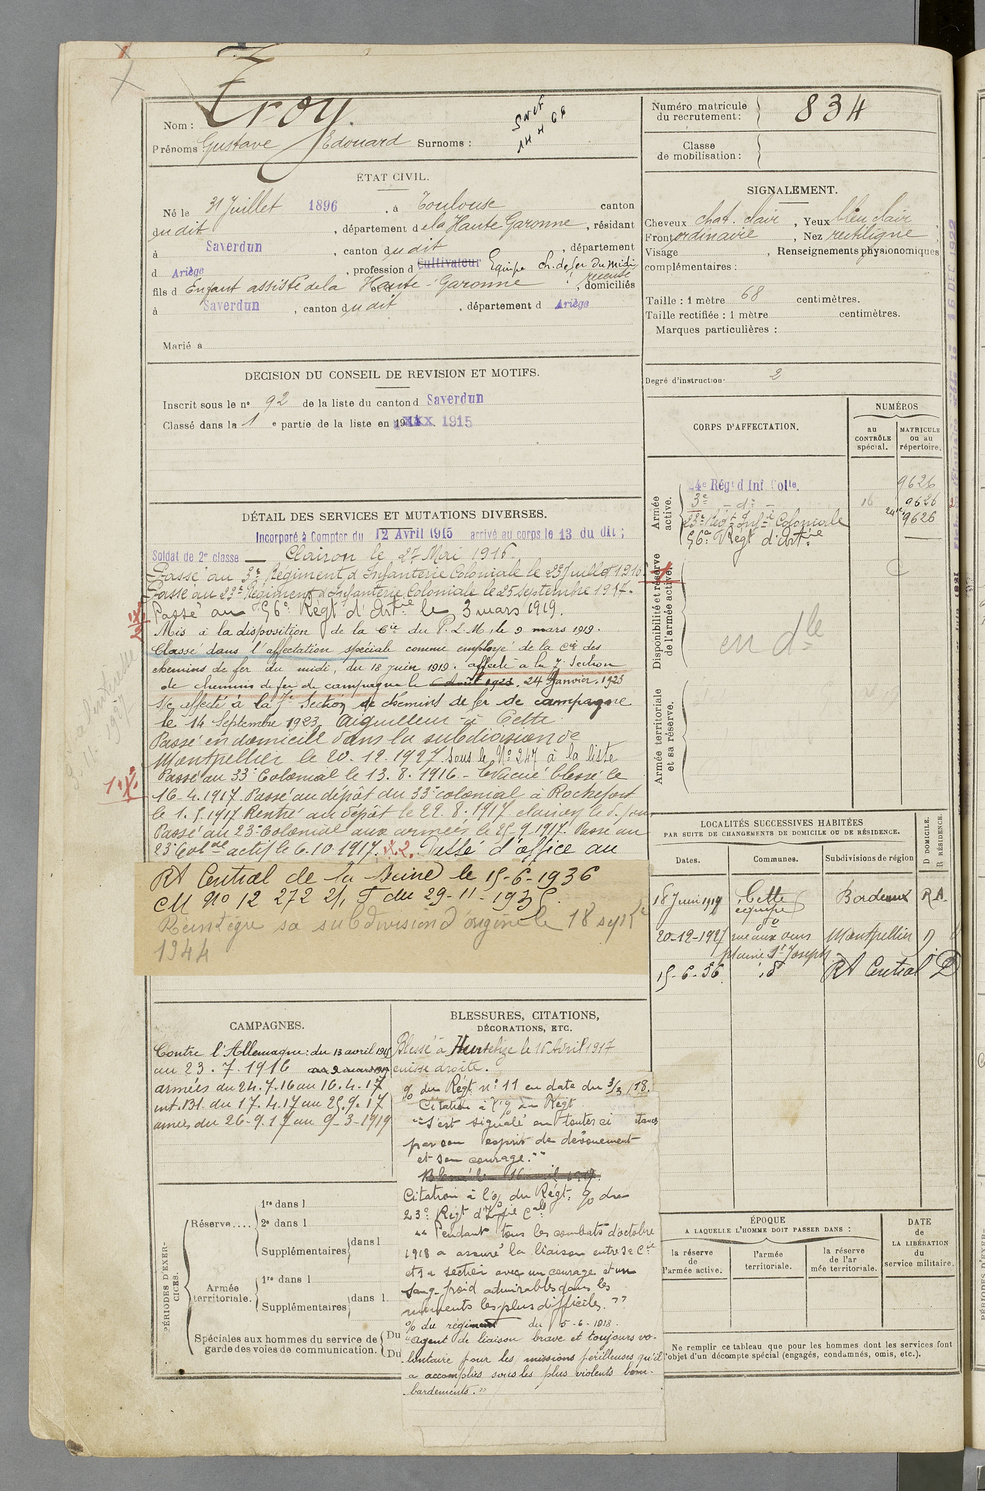 Nom : Troy.
Prénoms Gustave Edouard Surnoms :
Numéro matricule du recrutement : 834
Classe de mobilisation :
ÉTAT CIVIL.
Né le 31 Juillet 1896, à Toulouse canton
du dit, département de la Haute Garonne, résidant
à Saverdun, canton du dit, département
d Ariège, profession d Cultivateur Equipe ch. de fer du midi
fils d Enfant assisté de la Haute-Garonne, domiciliés
à Saverdun, canton du dit, département d Ariège
Marié à
SIGNALEMENT.
Cheveux chat. clair, Yeux bleu clair
Front ordinaire, Nez rectiligne
Visage, Renseignements physionomiques
complémentaires :
Taille : 1 mètre 68 centimètres.
Taille rectifiée : 1 mètre centimètres.
Marques particulières :
Degré d'instruction : 2
DECISION DU CONSEIL DE REVISION ET MOTIFS.
Inscrit sous le n° 92 de la liste du canton d Saverdun
Classé dans la 1 e partie de la liste en 1915
DÉTAIL DES SERVICES ET MUTATIONS DIVERSES.
Incorporé à Compter du 12 Avril 1915 arrivé au corps le 13 du dit ;
Soldat de 2e classe Clairon le 27 Mai 1916.
Passé au 3e Régiment d'Infanterie Coloniale le 23 Juillet 1916
Passé au 23e Régiment d'Infanterie Coloniale le 25 septembre 1917.
Passé au 56e Régt d'Artie le 3 mars 1919.
Mis à la disposition de la Cie du P.L.M. le 9 mars 1919.
Classé dans l'affectation spéciale comme employé de la Cie des
chemins de fer du midi, du 18 juin 1919. affecté à la 7e Section
de chemins de fer de campagne le 24 Janvier 1923
affecté à la 7e Section de chemins de fer de campagne
le 14 Septembre 1923. Aiguilleur à Cette
Passé en domicile dans la subdivision de
Montpellier le 20.12.1927 sous le No 247 à la liste
Passé au 33e Colonial le 13.8.1916 - Evacué blessé le
16-4.1917. Passé au dépôt du 33e colonial à Rochefort
le 1.5.1917 Rentré au dépôt le 22.8.1917 clairon le d. jour
Passé au 23e Colonial aux armées le 25-9-1917. Passé au
23e Colal actif le 6.10.1917. Passé d'office au
Rt Central de la Seine le 15-6-1936
CM No 12 272 2/1 T du 29-11-1935.
Réintègre sa subdivision d'origine le 18 septre
1944
CORPS D'AFFECTATION.
NUMÉROS
au CONTRÔLE spécial.
MATRICULE ou au répertoire.
Armée active.
4e Régt d Inf. Colle. 9626
3e - d° - 16 9626
23e Régt Infie Coloniale 9626
56e Régt d'Artie
Disponibilité et réserve de l'armée active.
en dle
Armée territoriale et sa réserve.
LOCALITÉS SUCCESSIVES HABITÉES
PAR SUITE DE CHANGEMENTS DE DOMICILE OU DE RÉSIDENCE.
Dates. Communes. Subdivisions de région D DOMICILE. R RÉSIDENCE.
18 Juin 1919 Cette équipe Bordeaux R.
20-12-1927 Montpellier D
15-6-36 id Rt Central D
CAMPAGNES.
Contre l'Allemagne : du 13 avril 1915
au 23.7.1916
armées du 24.7.16 au 16.4.17
int. 131 du 17.4.17 au 25.9.17
armées du 26-9.17 au 9-3-1919
BLESSURES, CITATIONS,
DÉCORATIONS, ETC.
Blessé à Hurtebize le 16 Avril 1917
cuisse droite.
% du Régt n° 11 en date du 3/3/18.
Citation à l'% du Régt
"S'est signalé en toutes ci stances
par son esprit de dévouement
et son courage."
Citation à l'% du Régt, % du
23e Régt d'Infie Cale
"Pendant tous les combats d'octobre
1918 a assuré la liaison entre sa Cie
et sa section avec un courage et un
sang froid admirables dans les
moments les plus difficiles."
% du régiment du 5-6-1918.
"Agent de liaison brave et toujours vo-
lontaire pour les missions périlleuses qu'il
a accomplies sous les plus violents bom-
bardements."
PÉRIODES D'EXERCICES.
Réserve.... 1re dans l
2e dans l
Supplémentaires dans l
Armée territoriale. 1re dans l
Supplémentaires dans l
Spéciales aux hommes du service de garde des voies de communication. Du
Du
ÉPOQUE
A LAQUELLE L'HOMME DOIT PASSER DANS :
la réserve de l'armée active.
l'armée territoriale.
la réserve de l'armée territoriale.
DATE de LA LIBÉRATION du service militaire.
Ne remplir ce tableau que pour les hommes dont les services font
l'objet d'un décompte spécial (engagés, condamnés, omis, etc.).